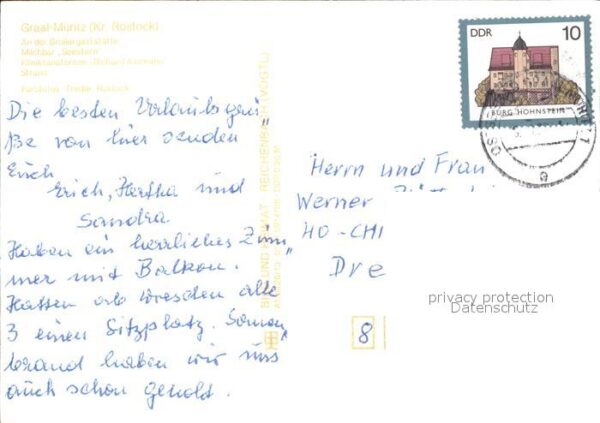 Graal-Müritz (Kr. Rostock)
An der Großgaststätte
Milchbar „Seestern"
Strand
DDR 10
BURG HOHNSTEIN
Die besten Urlaubsgrü
ße von hier senden
Euch
Erich, Hertha und
Sandra
Haben ein herrliches Zim
mer mit Balkon.
Hatten ab Dresden alle
3 einen Sitzplatz. Sonnen
brand haben wir uns
auch schon geholt.
BILD UND HEIMAT REICHENBACH (VOGTL)
Herrn und Frau
Werner
40 - CHI
Dre
8
privacy protection
Datenschutz